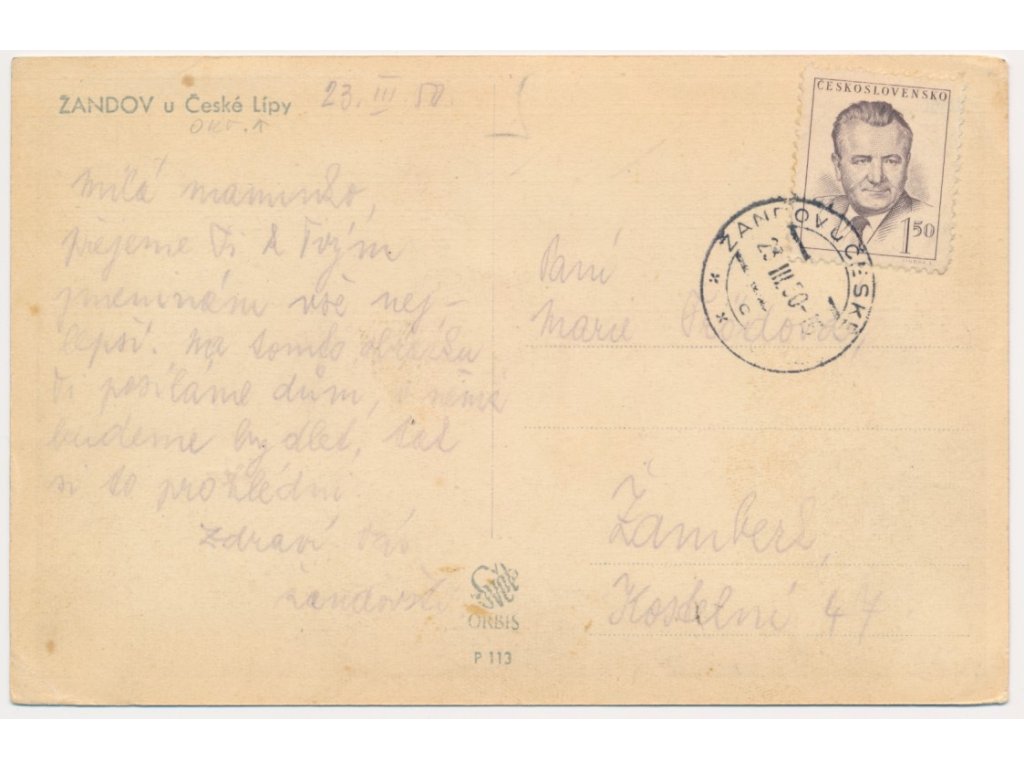 ŽANDOV u České Lípy
23. III 50
Milá maminko,
přejeme Ti k Tvým
jmeninám vše nej-
lepší. Na tomto obrázku
Ti posíláme dům, v němž
budeme bydlet, tak
si to prohlédni
Zdraví
žandovští
Svět
ORBIS
P 113
ČESKOSLOVENSKO
1 50
ŽANDOV u ČESKÉ
23 III 50
Paní
Marie
Žamberk,
Kostelní 47